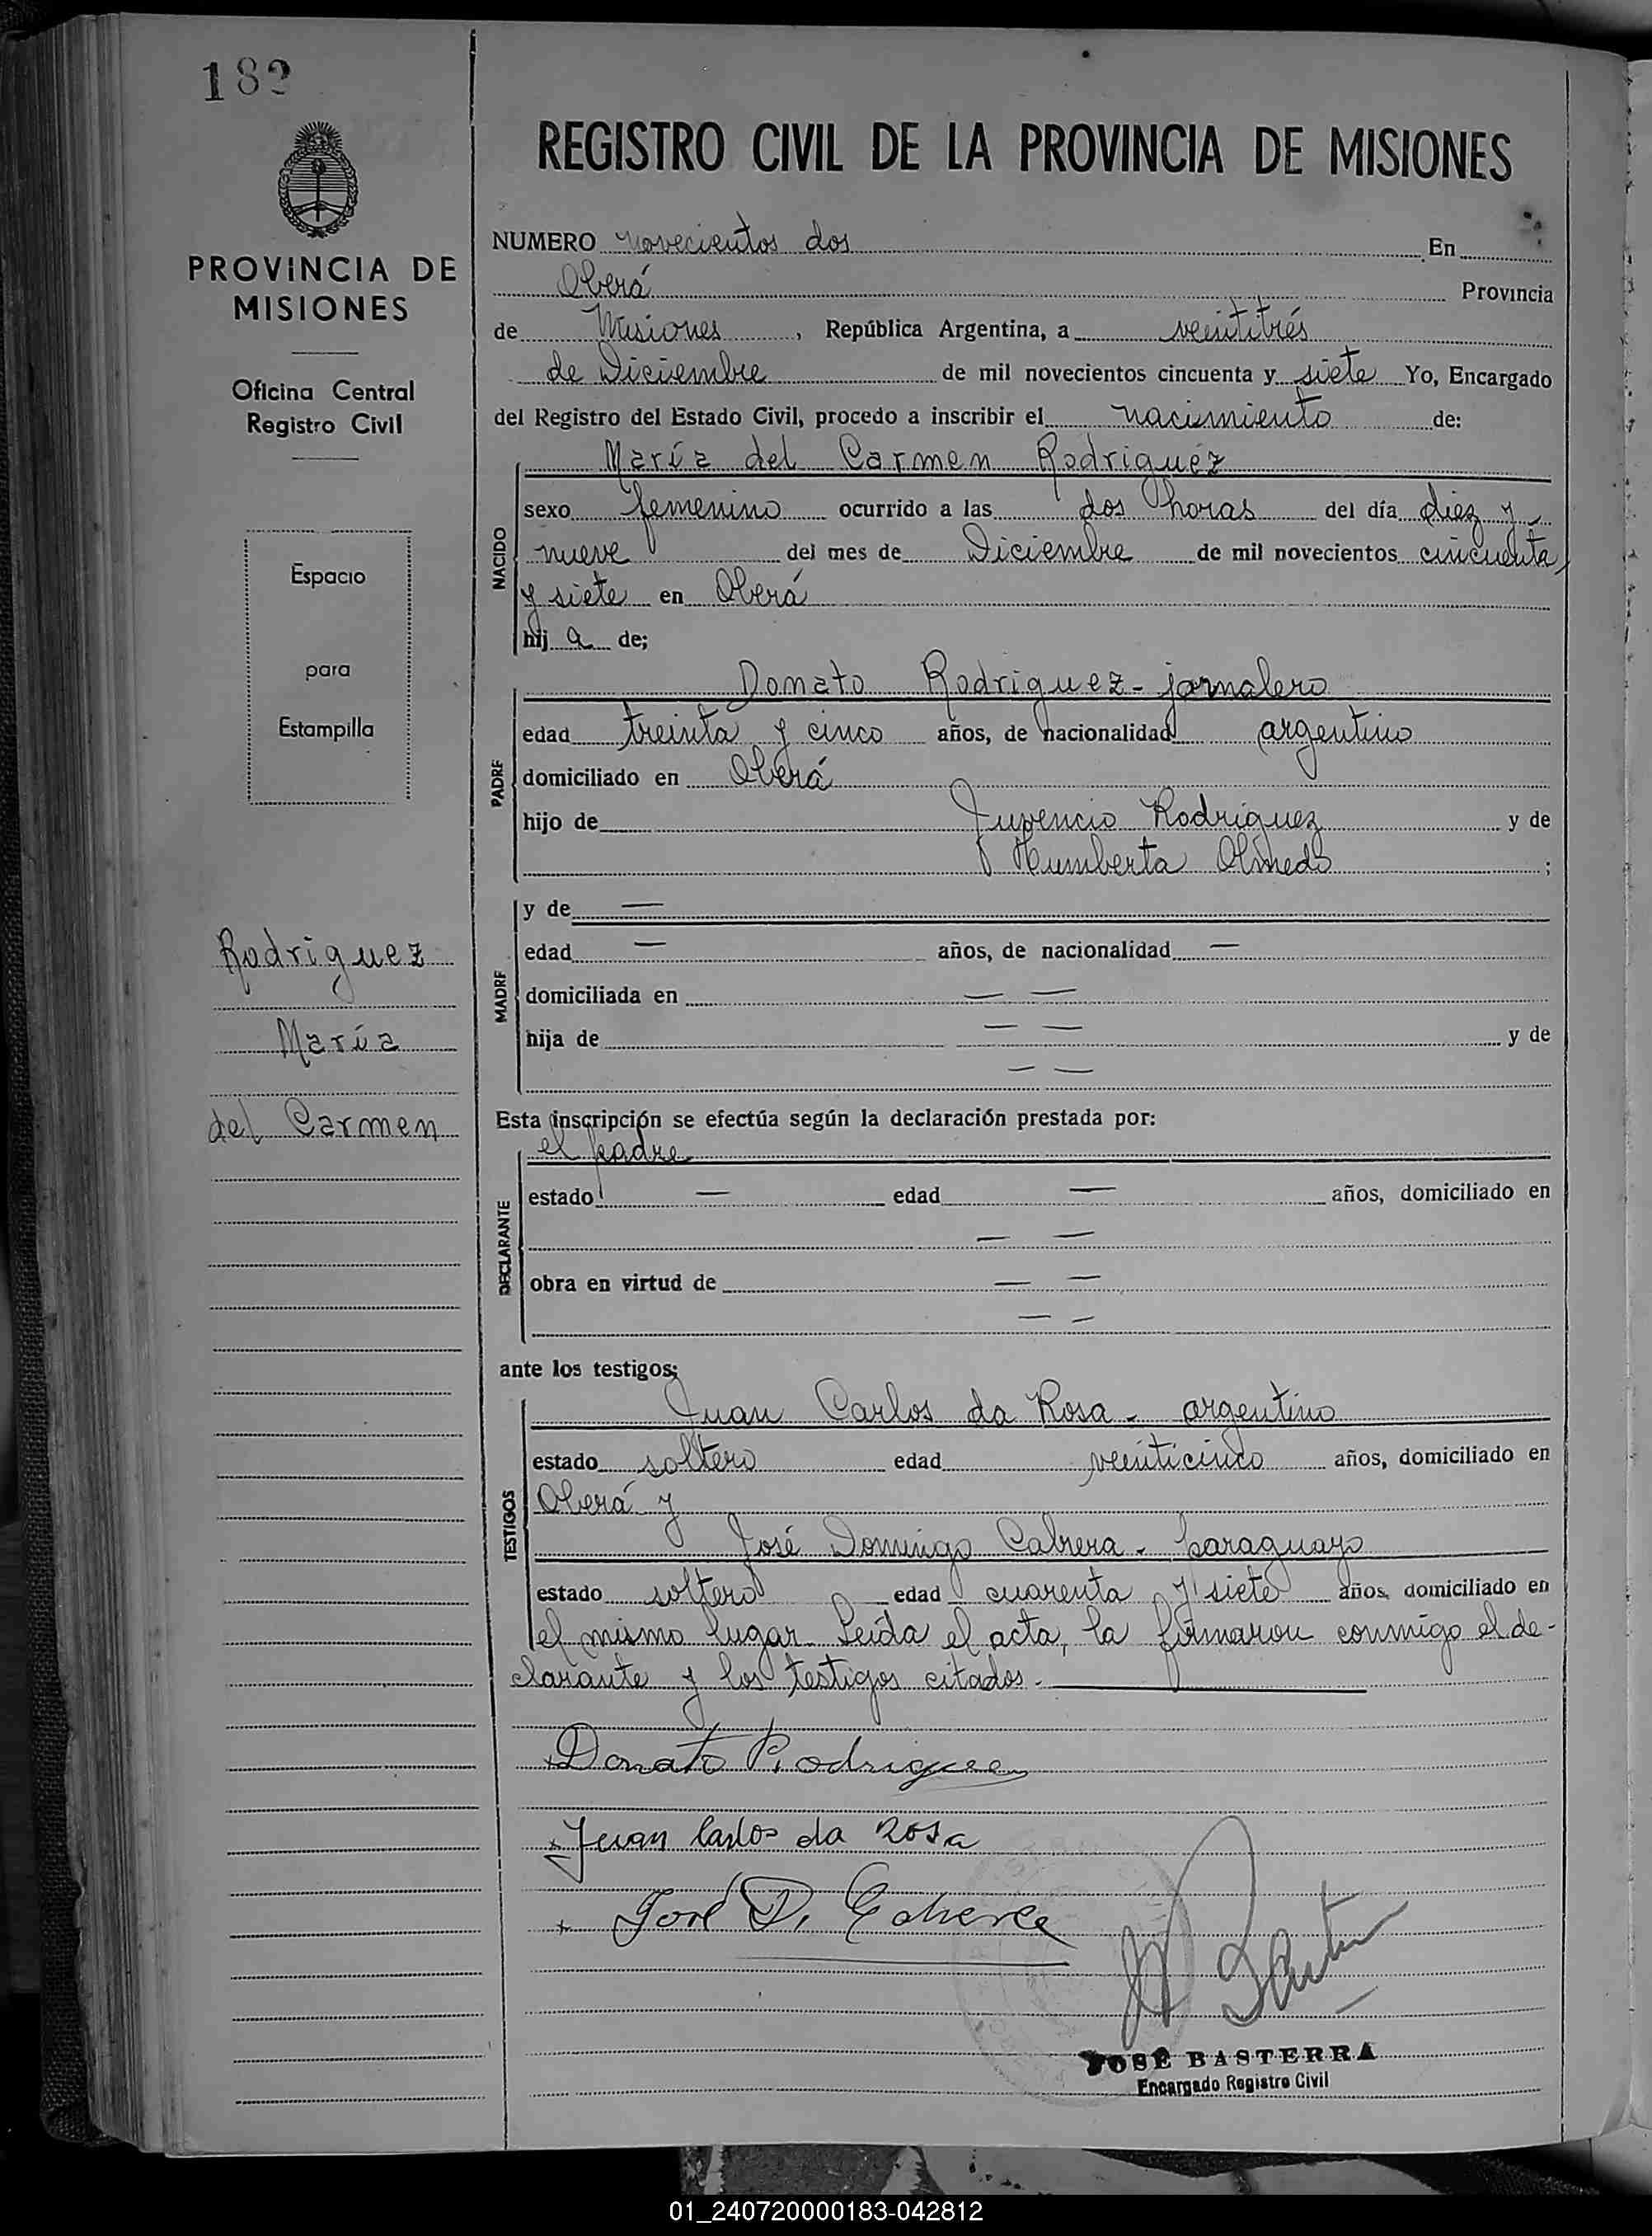 182
PROVINCIA DE
MISIONES
Oficina Central
Registro Civil
Espacio
para
Estampilla
Rodriguez
María
del Carmen
REGISTRO CIVIL DE LA PROVINCIA DE MISIONES
NUMERO novecientos dos En
Oberá Provincia
de Misiones, República Argentina, a veintitrés
de Diciembre de mil novecientos cincuenta y siete Yo, Encargado
del Registro del Estado Civil, procedo a inscribir el nacimiento de:
María del Carmen Rodriguez
NACIDO
sexo femenino ocurrido a las dos horas del día diez y
nueve del mes de Diciembre de mil novecientos cincuenta
y siete en Oberá
hij a de;
Donato Rodriguez - jornalero
PADRE
edad treinta y cinco años, de nacionalidad argentino
domiciliado en Oberá
hijo de Juvencio Rodriguez y de
Humberta Olmedo ;
MADRE
y de —
edad — años, de nacionalidad —
domiciliada en — —
hija de — — y de
— —
Esta inscripción se efectúa según la declaración prestada por:
el padre
DECLARANTE
estado — edad — años, domiciliado en
— —
obra en virtud de — —
— —
ante los testigos;
Juan Carlos da Rosa - argentino
TESTIGOS
estado soltero edad veinticinco años, domiciliado en
Oberá y
José Domingo Cabrera - paraguayo
estado soltero edad cuarenta y siete años, domiciliado en
el mismo lugar. Leída el acta, la firmaron conmigo el de-
clarante y los testigos citados.
Donato Rodriguez
Juan Carlos da Rosa
José D. Cabrera
JOSÉ BASTERRA
Encargado Registro Civil
01_240720000183-042812